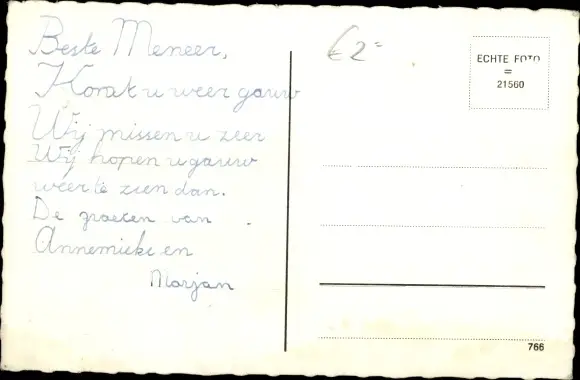 Beste Meneer,
Komt u weer gauw
Wij missen u zeer
Wij hopen u gauw
weer te zien dan.
De groeten van
Annemieke en
Marjan
€ 2=
ECHTE FOTO
=
21560
766